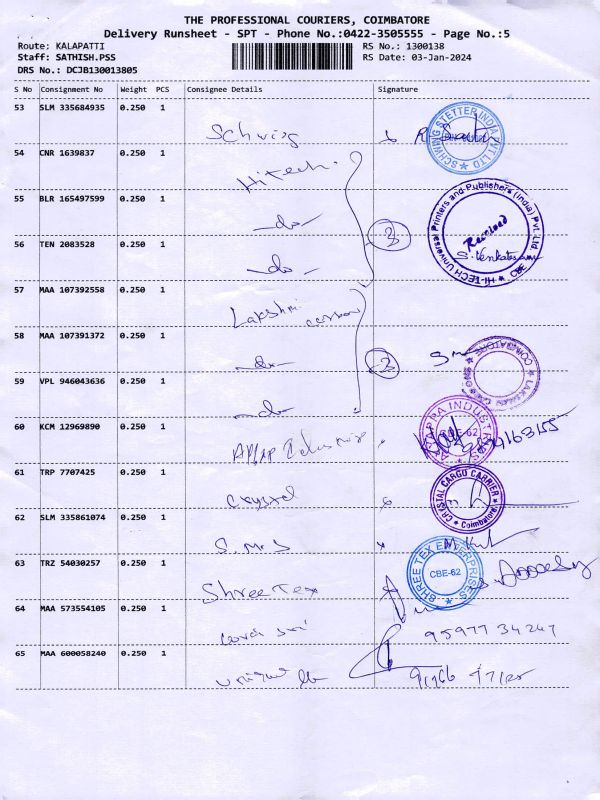 THE PROFESSIONAL COURIERS, COIMBATORE
Delivery Runsheet - SPT - Phone No.:0422-3505555 - Page No.:5
Route: KALAPATTI
RS No.: 1300138
Staff: SATHISH.PSS
RS Date: 03-Jan-2024
DRS No.: DCJB130013805
S No Consignment No Weight PCS Consignee Details Signature
53 SLM 335684935 0.250 1 Schwing
SCHWING STETTER INDIA PVT LTD
54 CNR 1639837 0.250 1 Hitech
55 BLR 165497599 0.250 1 -do-
HI-TECH Universal Printers and Publishers (India) Pvt. Ltd. CBE
Received
S. Venkatesan
56 TEN 2083528 0.250 1 -do-
3
57 MAA 107392558 0.250 1 Lakshmi
58 MAA 107391372 0.250 1 -do-
COIMBATORE
59 VPL 946043636 0.250 1 -do-
60 KCM 12969890 0.250 1
INDUSTRIES
CBE-62
61 TRP 7707425 0.250 1 Crystal
CRYSTAL CARGO CARRIER
Coimbatore
62 SLM 335861074 0.250 1
63 TRZ 54030257 0.250 1 Shree Tex
SHREE TEX ENTERPRISES
CBE-62
64 MAA 573554105 0.250 1
95977 34247
65 MAA 600058240 0.250 1